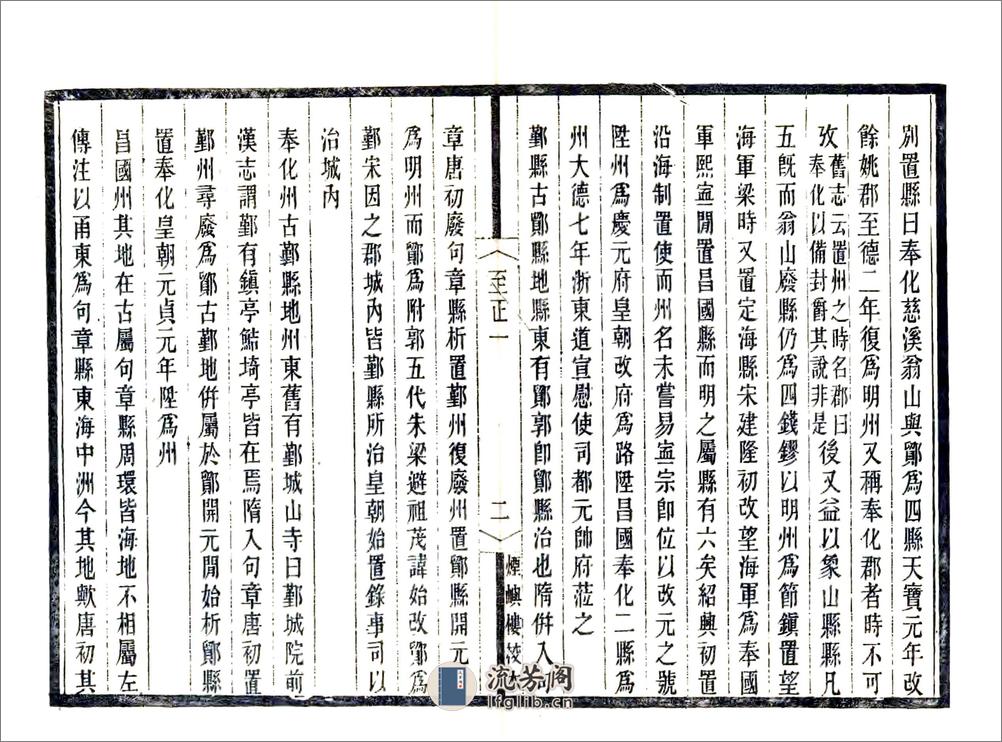 別置縣曰奉化慈溪翁山與鄮爲四縣天寶元年改
餘姚郡至德二年復爲明州又稱奉化郡者時不可
攷舊志云置州之時名郡曰
奉化以備封爵其說非是
後又益以象山縣凡
五旣而翁山廢縣仍爲四錢鏐以明州爲節鎮置望
海軍梁時又置定海縣宋建隆初改望海軍爲奉國
軍熙寧閒置昌國縣而明之屬縣有六矣紹興初置
沿海制置使而州名未嘗易寧宗卽位以改元之號
陞州爲慶元府皇朝改府爲路陞昌國奉化二縣爲
州大德七年浙東道宣慰使司都元帥府蒞之
鄞縣古鄮縣地縣東有鄮郭卽鄮縣治也隋併入
至正一
二
煙嶼樓校
章唐初廢句章縣析置鄞州復廢州置鄮縣開元
爲明州而鄮爲附郭五代朱梁避祖茂諱始改鄮爲
鄞宋因之郡城內皆鄞縣所治皇朝始置錄事司以
治城內
奉化州古鄞縣地州東舊有鄞城山寺曰鄞城院前
漢志謂鄞有鎮亭鮚埼亭皆在焉隋入句章唐初置
鄞州尋廢爲鄮古鄞地併屬於鄮開元閒始析鄮縣
置奉化皇朝元貞元年陞爲州
昌國州其地在古屬句章縣周環皆海地不相屬左
傳注以甬東爲句章縣東海中洲今其地歟唐初其
流芳阁
lfglib.cn